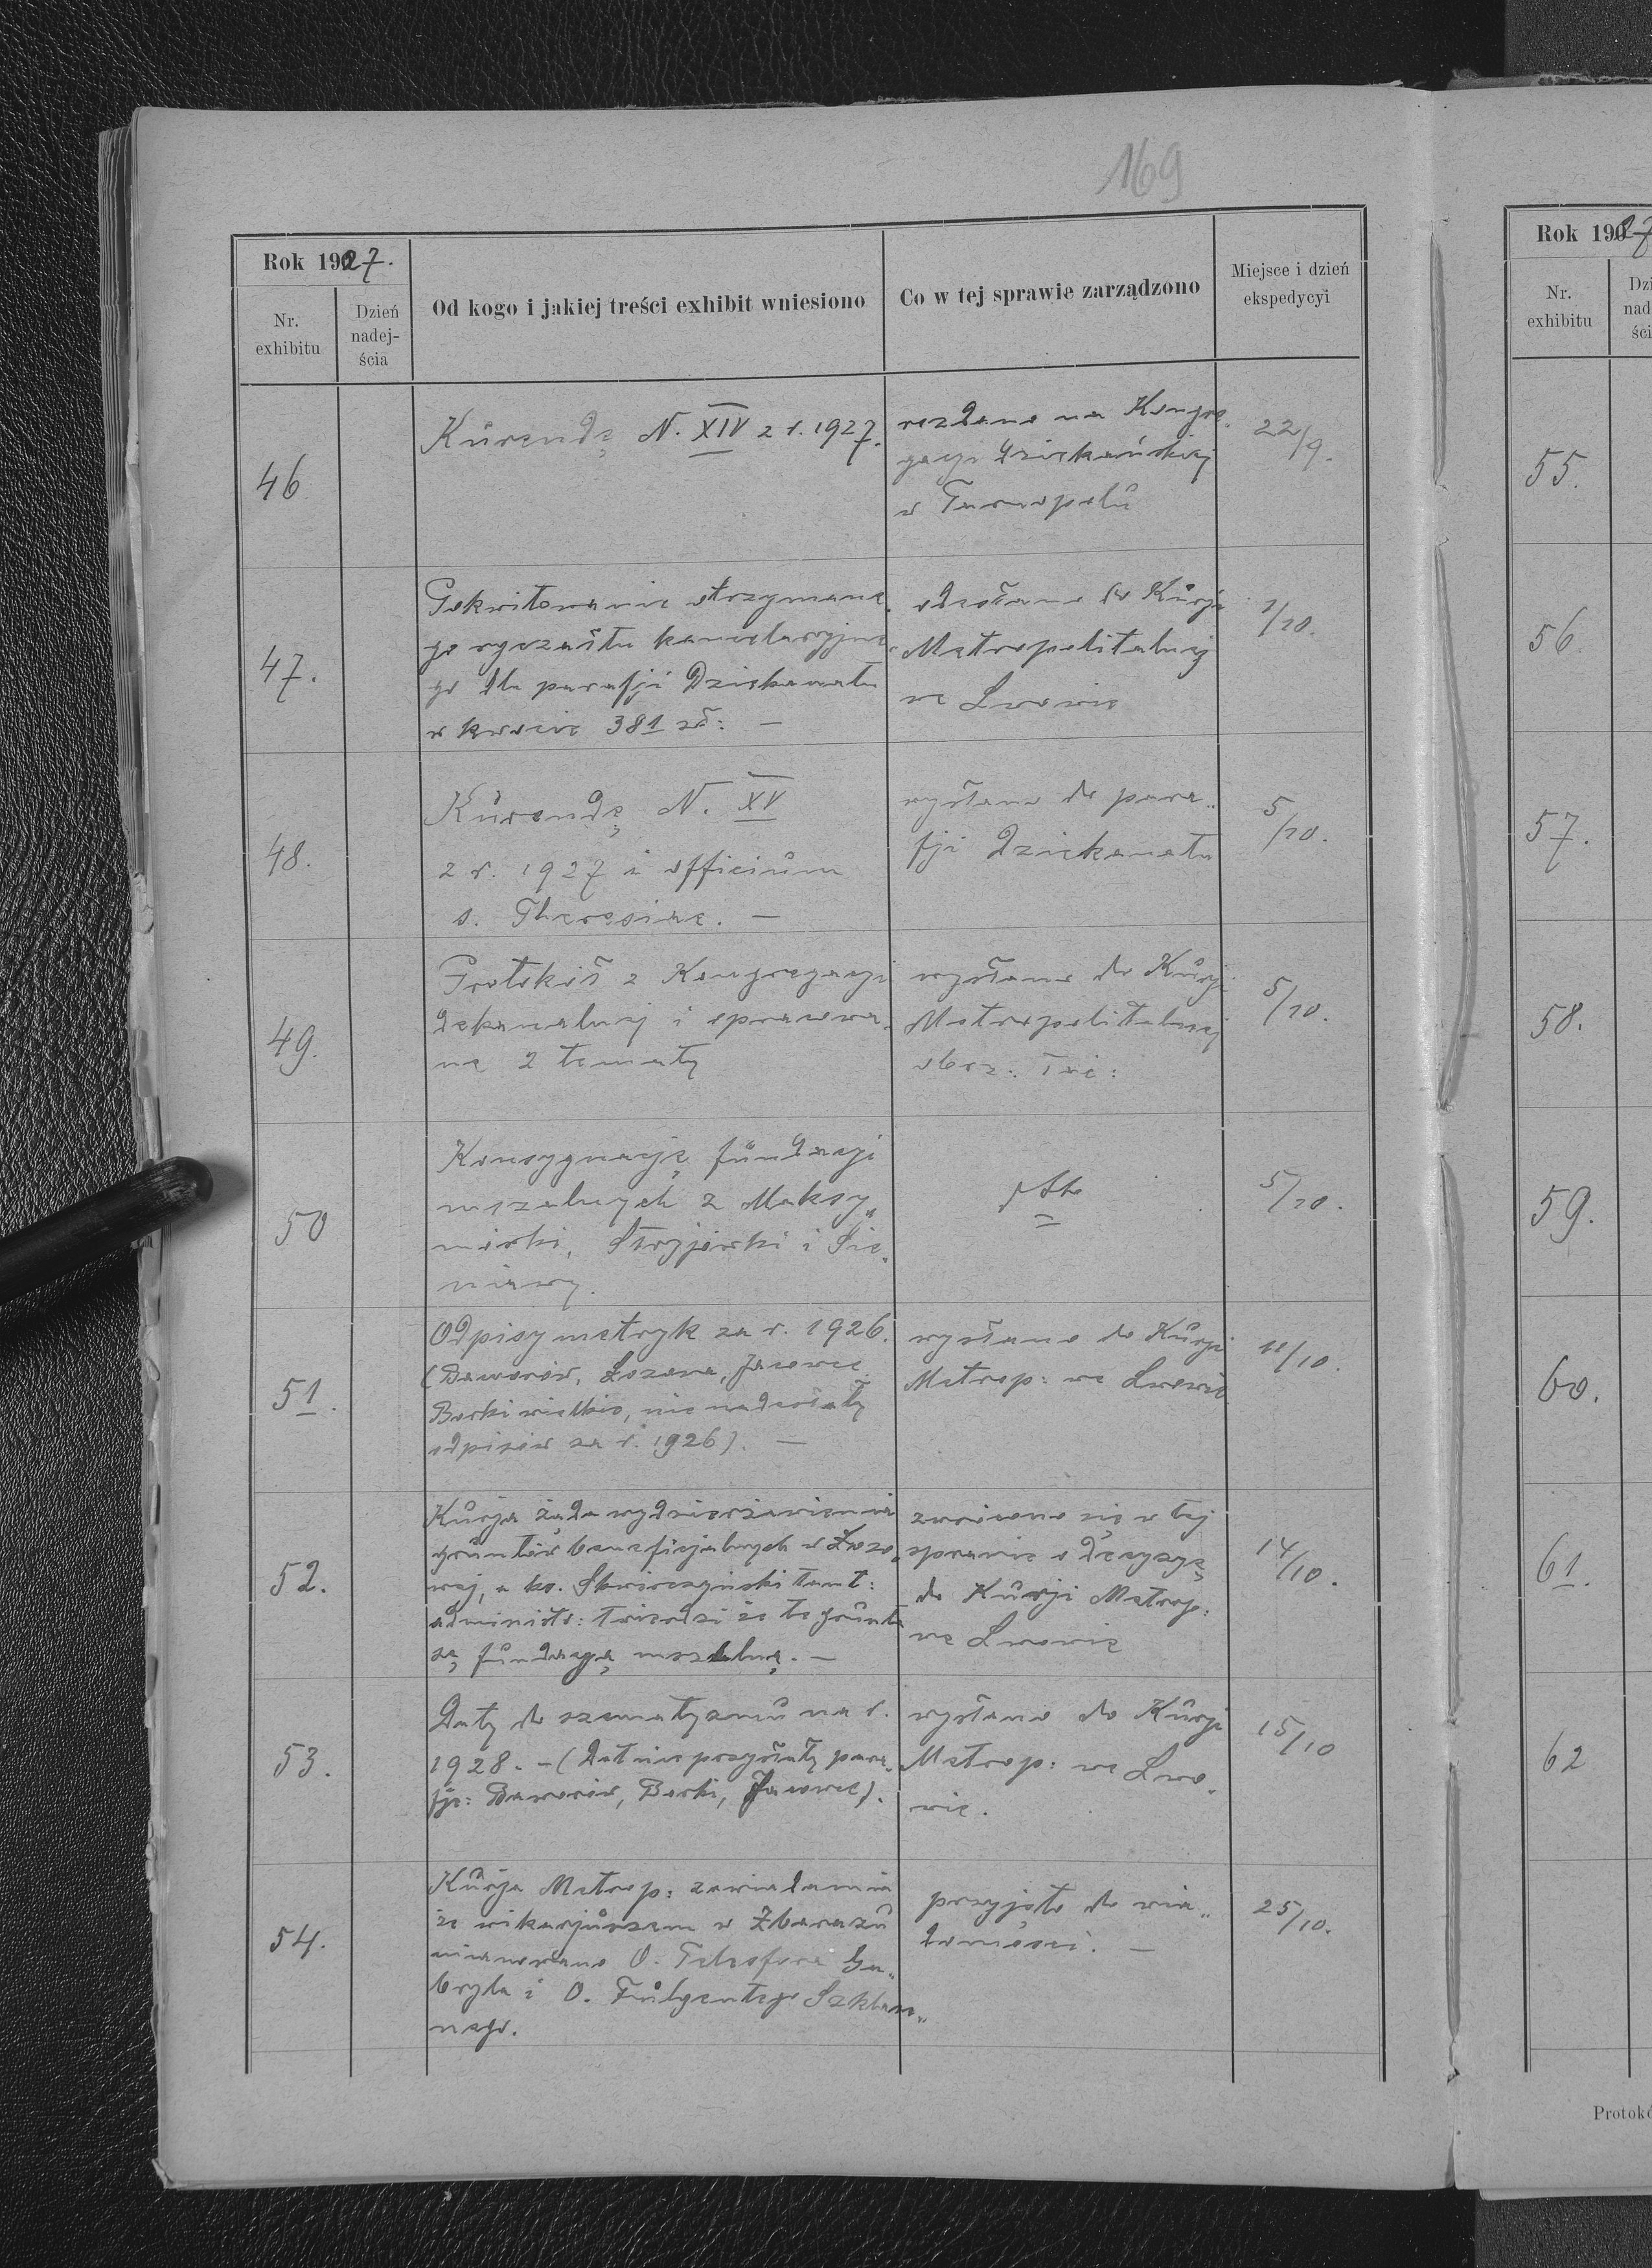 169
Rok 1927.
Nr. exhibitu
Dzień nadej-ścia
Od kogo i jakiej treści exhibit wniesiono
Co w tej sprawie zarządzono
Miejsce i dzień ekspedycyi
46
Kurendę N. XIV z r. 1927.
rozdano na Kongre-
gacji dziekańskiej
w Tarnopolu
22/9.
47.
Pokwitowanie otrzymane-
go ryczałtu kancelaryjne-
go dla parafji Dziekanatu
w kwocie 381 zł: —
odesłano do Kurji
Metropolitalnej
we Lwowie
1/10.
48.
Kurendę N. XV
z r. 1927 i officium
s. Theresiae. —
wysłano do para„
fji dziekanatu
5/10.
49.
Protokół z Kongregacji
dekanalnej i opracowa-
ne 2 tematy
wysłano do Kurji
Metropolitalnej
obrz. łac:
5/10.
50
Konsygnację fundacji
mszalnych z Maksy„
mówki, Stryjówki i Sie„
niawy.
dtto
5/10.
51.
Odpisy metryk za r. 1926.
(Baworów, Łozowa, Jacowce
Borki wielkie, nie nadesłały
odpisów za r. 1926). —
wysłano do Kurji
Metrop: we Lwowie
11/10.
52.
Kurja żąda wydzierżawienia
gruntów beneficjalnych w Łozo„
wej, a ks. tamt:
administr: twierdzi że te grunta
są fundacją mszalną. —
zwrócono się w tej
sprawie o decyzyę
do Kurji Metrop:
we Lwowie
14/10.
53.
Daty do szematyzmu na r.
1928. - (Dat nie przysłały para„
fje: Baworów, Borki, Jacowce).
wysłano do Kurji
Metrop: we Lwo„
wie.
15/10
54.
Kurja Metrop: zawiadamia
że wikarjuszem w Zbarażu
mianowano O. Telesfora Ga„
bryla i O. Fulgentego Szklan„
nego.
przyjęto do wia„
domości. —
25/10.
Rok 1927
Nr. exhibitu
55.
56.
57.
58.
59.
60.
61.
62